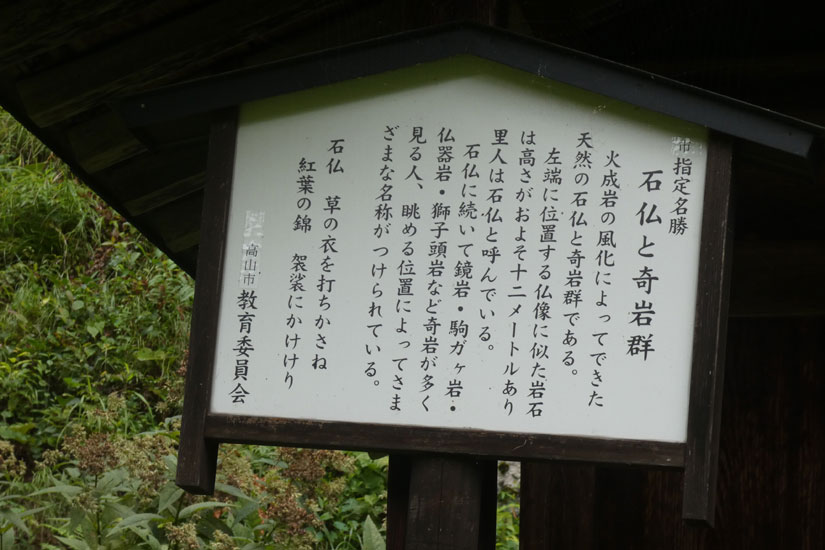 市指定名勝
石仏と奇岩群
火成岩の風化によってできた
天然の石仏と奇岩群である。
左端に位置する仏像に似た岩石
は高さがおよそ十二メートルあり
里人は石仏と呼んでいる。
石仏に続いて鏡岩・駒ガヶ岩・
仏器岩・獅子頭岩など奇岩が多く
見る人、眺める位置によってさま
ざまな名称がつけられている。
石仏 草の衣を打ちかさね
紅葉の錦 袈裟にかけけり
高山市教育委員会